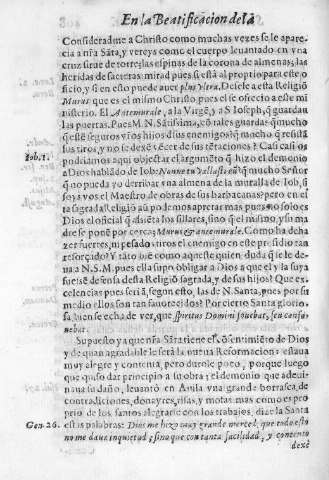 En la Beatificacion de la
Consideradme a Christo como muchas vezes se le aparecia
a nra Sāta, y vereys como el cuerpo leuantado en vna
cruz sirue de torre, las espinas de la corona de almenas; las
heridas de saeteras: mirad pues si está al proprio para este oficio,
y si en esto puede auer plus vltra. Desele a esta Religiō
Murus que es el mismo Christo pues el se ofrecio a este ministerio.
El Antemurale, a la Virgē, y a S. Ioseph, q̄ guardā
las puertas. Pues M. N. Sātissima, cō tales guardas q̄ mucho
q̄ estē seguros v̄ros hijos d̄ sus enemigos? q̄ mucho q̄ resistā
los tiros, y no se dexē vēcer de sus tētaciones? Casi casi os
Iob. 1. podriamos aqui objectar el argumētο q̄ hizo el demonio
a Dios hablādo de Iob: Nonne tu vallasti eū? q̄ mucho Señor
q̄ no pueda yo derribar vna almena de la muralla de Iob, si
soys vos el Maestro de obras de sus barbacanas? pero en esta
sagrada Religiō aū podemos apretar mas pues no solo es
Dios el oficial q̄ assiēta los sillares, sino que el mismo, y su madre
se ponē por cercas Murus & antemurale. Como ha de hazer
fuerte, ni pesado tiros el enemigo en este presidio tan
reforçado? Y tābiē como aqueste quien duda q̄ se le deua
a N. S. M. pues ella supo obligar a Dios a que el y la suya
fuessē defensa desta Religiō sagrada, y de sus hijos? Que excelencias
pues seriā, segun esto, las de N. Santa, pues por su
medio ellos son tan fauorecidos? Por cierto Santa gloriosa,
bien se echa de ver, que spiritus Domini fouebat, seu confouebat.
Supuesto ya que nra Sāta tiene el cōsentimiēto de Dios
y de quan agradable le será la nueua Reformacion: estaua
muy alegre y contenta, pero durole poco, porque luego
que quiso dar principio a su obra; el demonio que adeuinaua
su daño, leuantò en Auila vna grande borrasca, de
contradiciones, donayres, risas, y motas mas como es proprio
de los santos alegrarse con los trabajos, dize la Santa
Gen. 26. estas palabras: Dios me hizo muy grande merced, que todo esto
no me daua inquietud; sino que con tanta facilidad, y contento
dexè